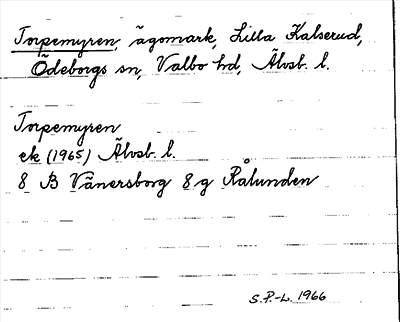 Torpemyren, ägomark, Lilla Kalserud,
Ödeborgs sn, Valbo hd, Älvsb. l.
Torpemyren
ek (1965) Älvsb. l.
8 B Vänersborg 8 g Rålunden
S.P.-L. 1966